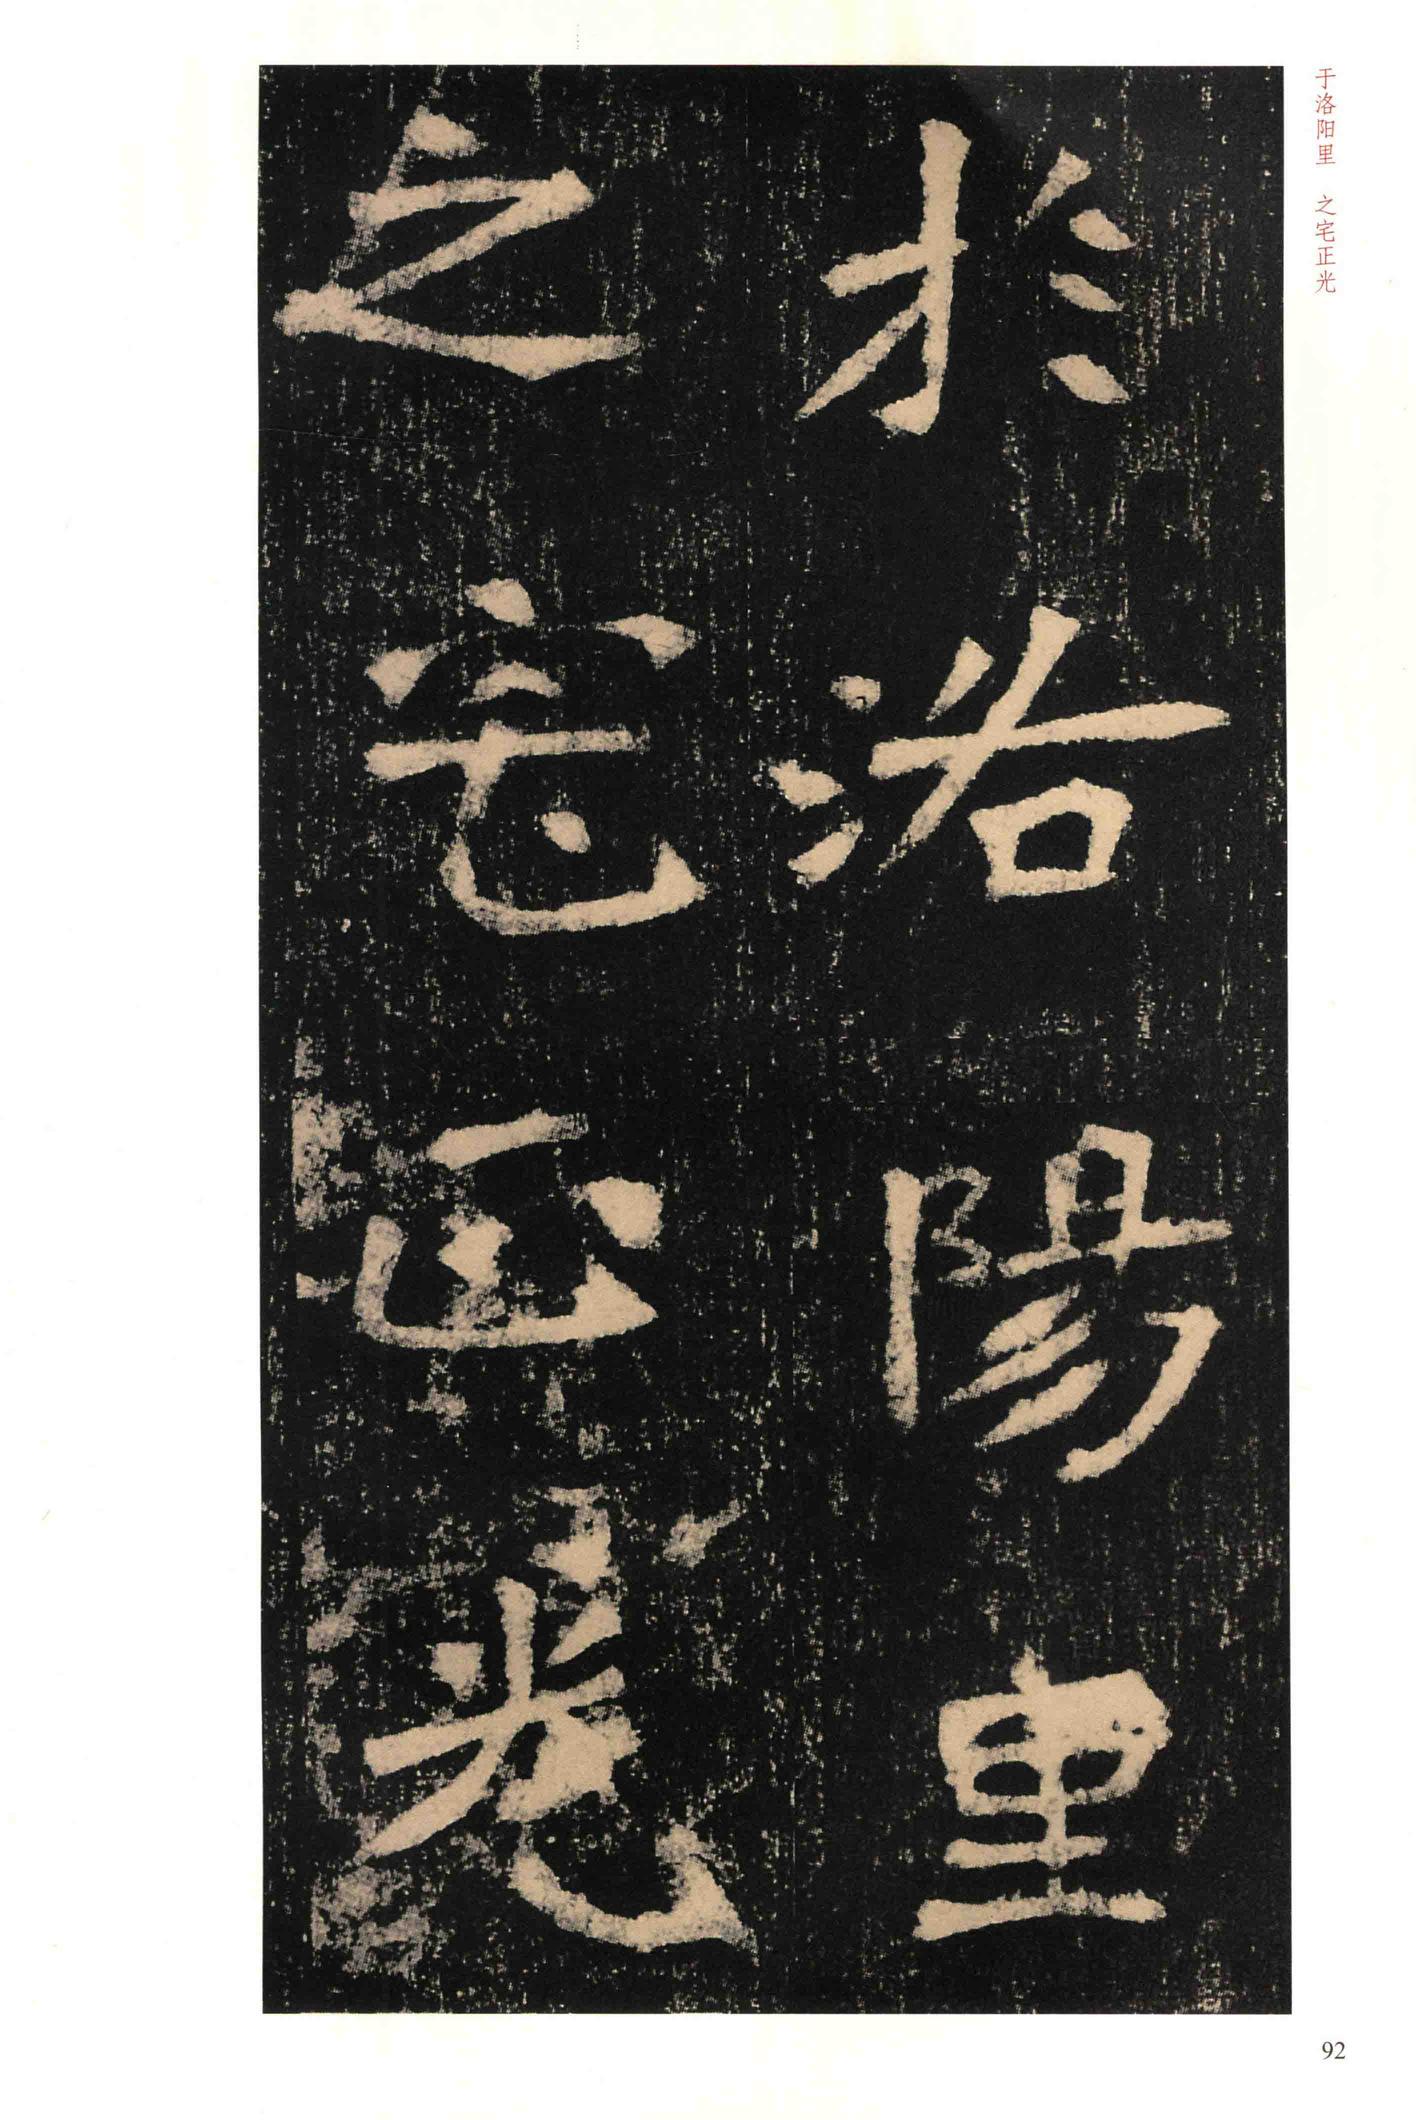 于洛阳里　之宅正光
於洛陽里
之宅正光
92